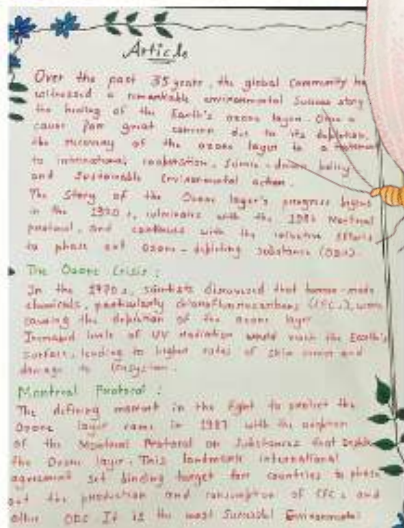 Article
Over the past 35 years, the global community ha
witnessed a remarkable environmental success story
the healing of the Earth's ozone layer. Once a
cause for great concern due to its depletion,
the recovery of the ozone layer is a testament
to international cooperation, science-driven policy
and sustainable environmental action.
The story of the Ozone layer's progress begins
in the 1970s, culminates with the Montreal
protocol, and continues with the collective efforts
to phase out ozone-depleting substance (ODS).
The Ozone Crisis :
In the 1970s, scientists discovered that human-made
chemicals, particularly chlorofluorocarbons (CFCs), were
causing the depletion of the ozone layer
Increased levels of UV radiation would reach the Earth's
surface, leading to higher rates of skin cancer and
damage to Ecosystem.
Montreal Protocol :
The defining moment in the fight to protect the
Ozone layer came in 1987 with the adoption
of the Montreal Protocol on Substances that Deplete
the Ozone layer. This landmark international
agreement set binding target for countries to phase
out the production and consumption of CFCs and
other ODS It is the most Successful Environmental